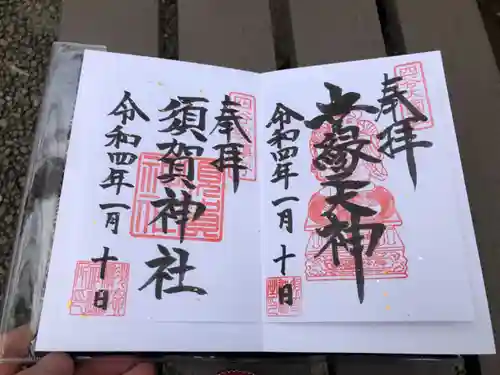 奉拝
四谷
世縁天神
令和四年一月
十日
奉拝
四谷
須賀神社
令和四年一月
十日